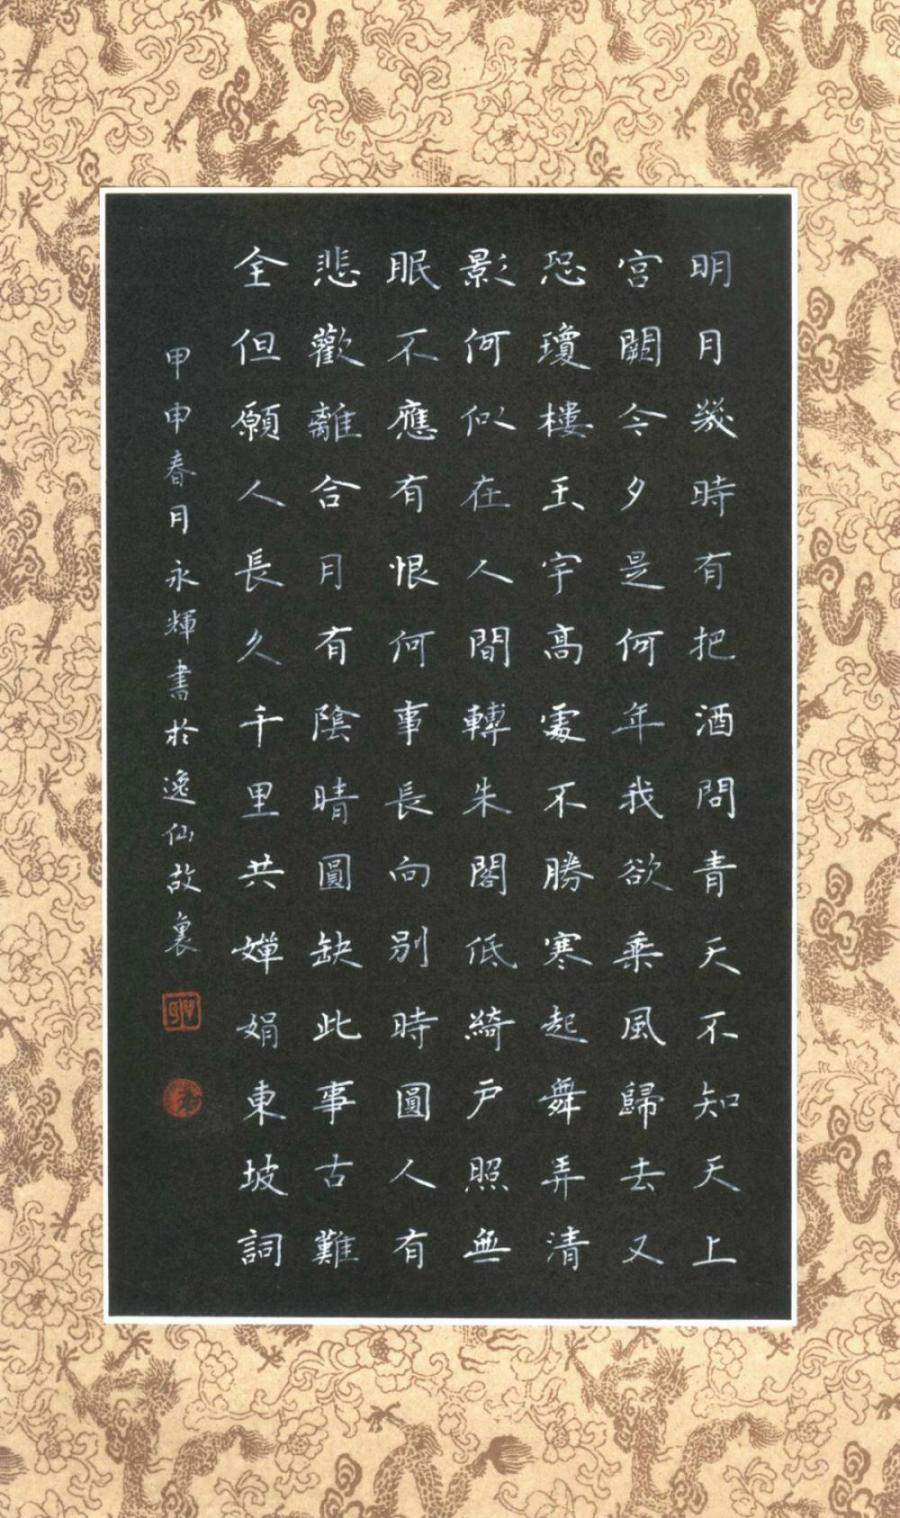 明月幾時有把酒問青天不知天上
宮闕今夕是何年我欲乘風歸去又
恐瓊樓玉宇高處不勝寒起舞弄清
影何似在人間轉朱閣低綺戶照無
眠不應有恨何事長向別時圓人有
悲歡離合月有陰晴圓缺此事古難
全但願人長久千里共嬋娟東坡詞
甲申春月永輝書於逸仙故裏